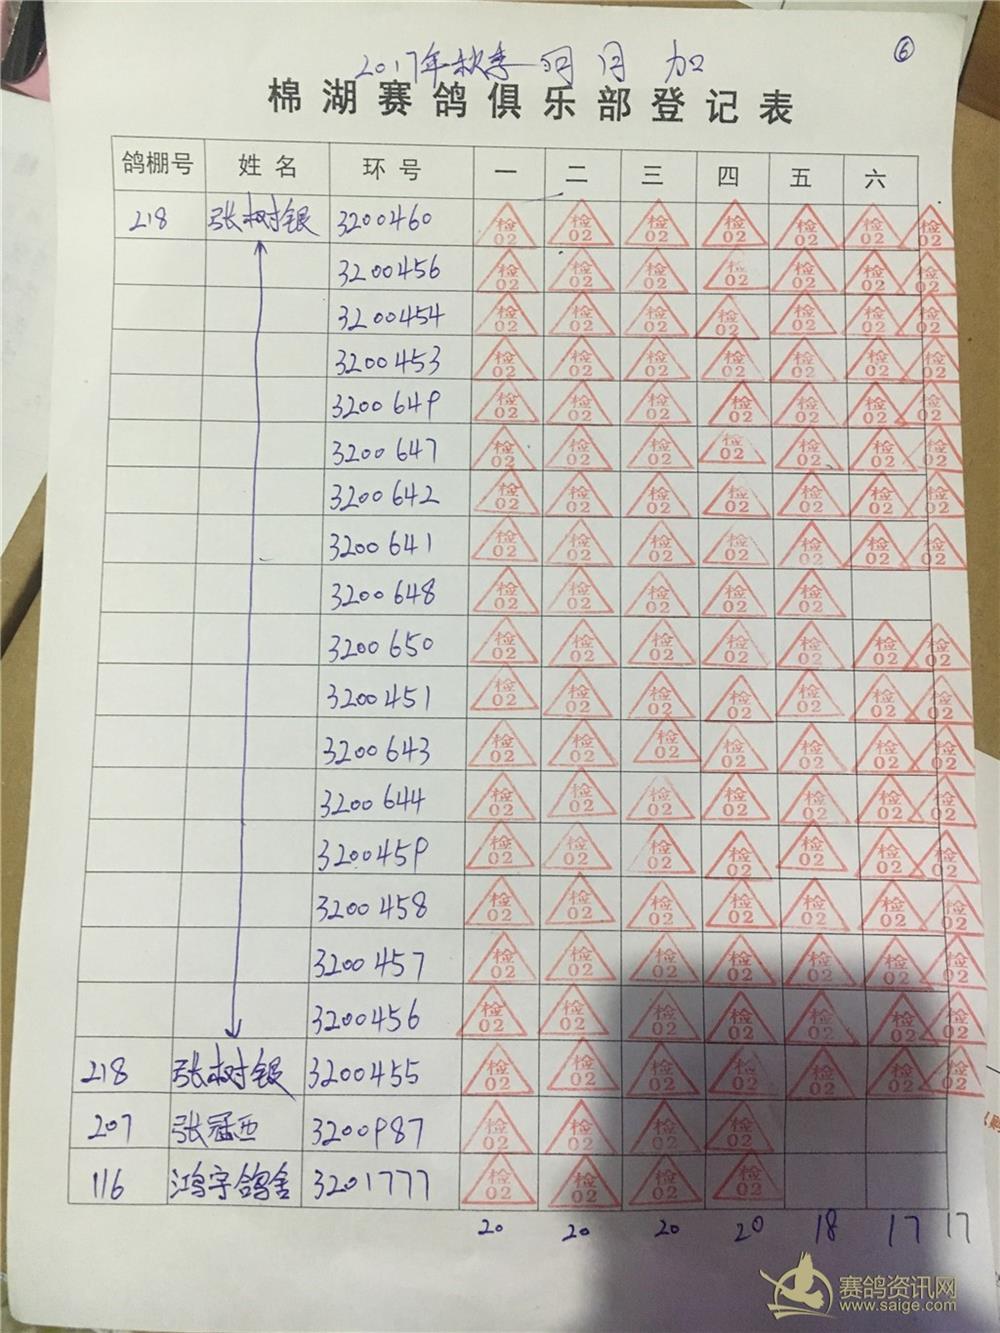 ⑥
2017年秋季 同月 加
棉湖赛鸽俱乐部登记表
鸽棚号 姓名 环号 一 二 三 四 五 六
218 张树银 3200460 检02 检02 检02 检02 检02 检02 检02
3200456 检02 检02 检02 检02 检02 检02 检02
3200454 检02 检02 检02 检02 检02 检02 检02
3200453 检02 检02 检02 检02 检02 检02 检02
3200649 检02 检02 检02 检02 检02 检02 检02
3200647 检02 检02 检02 检02 检02 检02 检02
3200642 检02 检02 检02 检02 检02 检02 检02
3200641 检02 检02 检02 检02 检02 检02 检02
3200648 检02 检02 检02 检02 检02
3200650 检02 检02 检02 检02 检02 检02 检02
3200451 检02 检02 检02 检02 检02 检02 检02
3200643 检02 检02 检02 检02 检02 检02 检02
3200644 检02 检02 检02 检02 检02 检02 检02
3200459 检02 检02 检02 检02 检02 检02 检02
3200458 检02 检02 检02 检02 检02 检02 检02
3200457 检02 检02 检02 检02 检02 检02 检02
3200456 检02 检02 检02 检02 检02 检02 检02
218 张树银 3200455 检02 检02 检02 检02 检02 检02 检02
207 张冠西 3200987 检02 检02 检02 检02
116 鸿宇鸽舍 3201777 检02 检02 检02 检02
20 20 20 20 18 17 17
赛鸽资讯网
www.saige.com